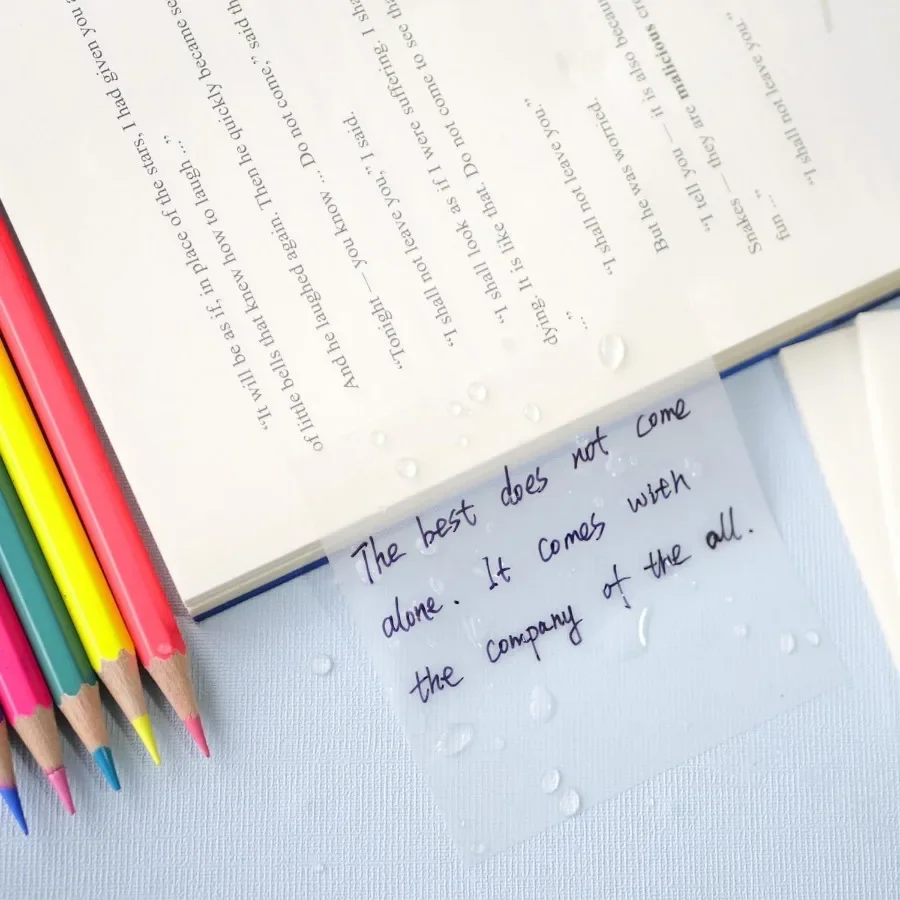 "It will be as if, in place of the stars, I had given you
of little bells that knew how to laugh ..."
And he laughed again. Then he quickly became se
"Tonight — you know ... Do not come," said th
"I shall not leave you," I said.
"I shall look as if I were suffering. I sha
dying. It is like that. Do not come to see tha
..."
"I shall not leave you."
But he was worried.
"I tell you — it is also becau
Snakes — they are malicious cre
fun ..."
"I shall not leave you."
The best does not come
alone. It comes with
the company of the all.